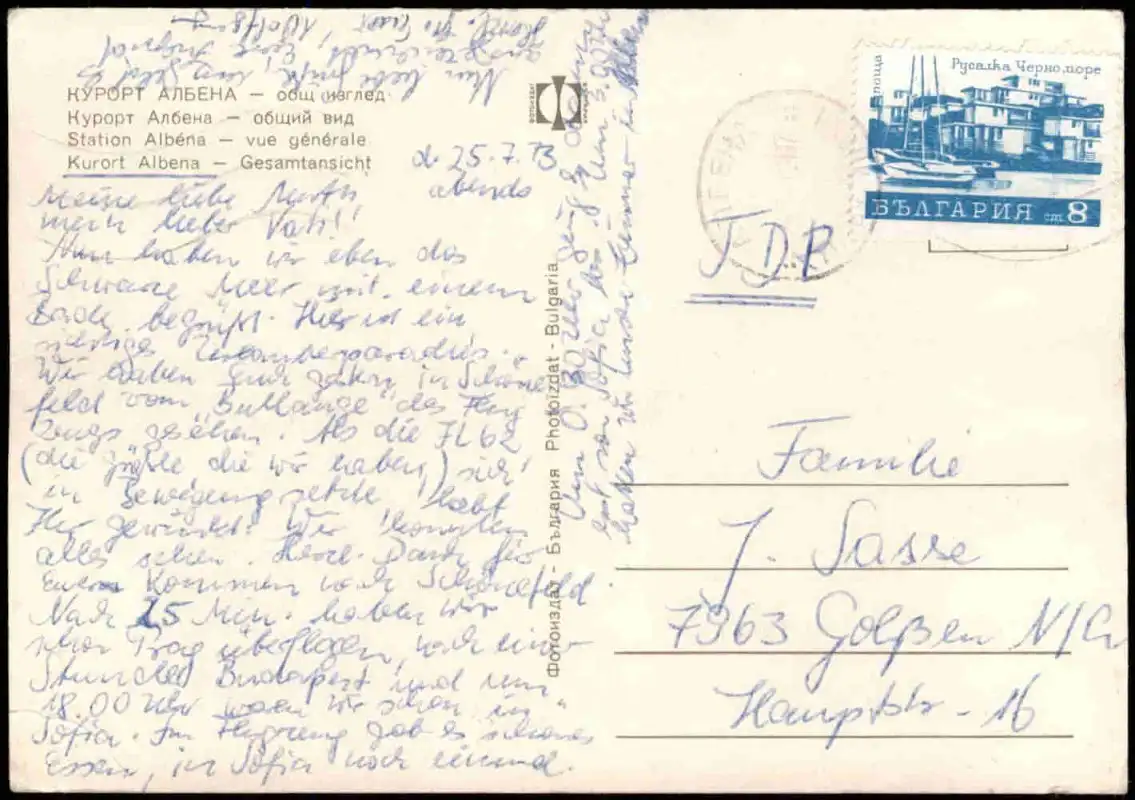 КУРОРТ АЛБЕНА – общ изглед
Курорт Албена – общий вид
Station Albéna – vue générale
Kurort Albena – Gesamtansicht
d. 25.7.73
abends
Meine liebe Mutti
mein lieber Vati!
Nun haben wir eben das
Schwarze Meer mit einem
Bade begrüßt. Hier ist ein
Urlauberparadies.
Wir haben Euch in Schöne
feld vom des Flug
zeugs gesehen. Als die IL 62
(die größte die wir haben) sich
in Bewegung setzte habt
Ihr gewinkt. Wir konnten
alles sehen. Herzl. Dank für
Euer Kommen nach Schönefeld.
Nach 25 Min. haben wir
schon Prag überflogen, nach einer
Stunde Budapest und um
18.00 Uhr waren wir schon in
Sofia. Im Flugzeug gab es schönes
Essen, in Sofia noch einmal.
Um 0.30 Uhr ging es
erst von Sofia los Um 3.00 Uhr
hatten wir unser Zimmer in Albena
Nun liebe
Фотоиздат - България Photoizdat - Bulgaria
поща
Русалка Черно море
БЪЛГАРИЯ ст 8
DDR
Familie
J. Sasse
7963 Golßen N/L
Hauptstr. 16